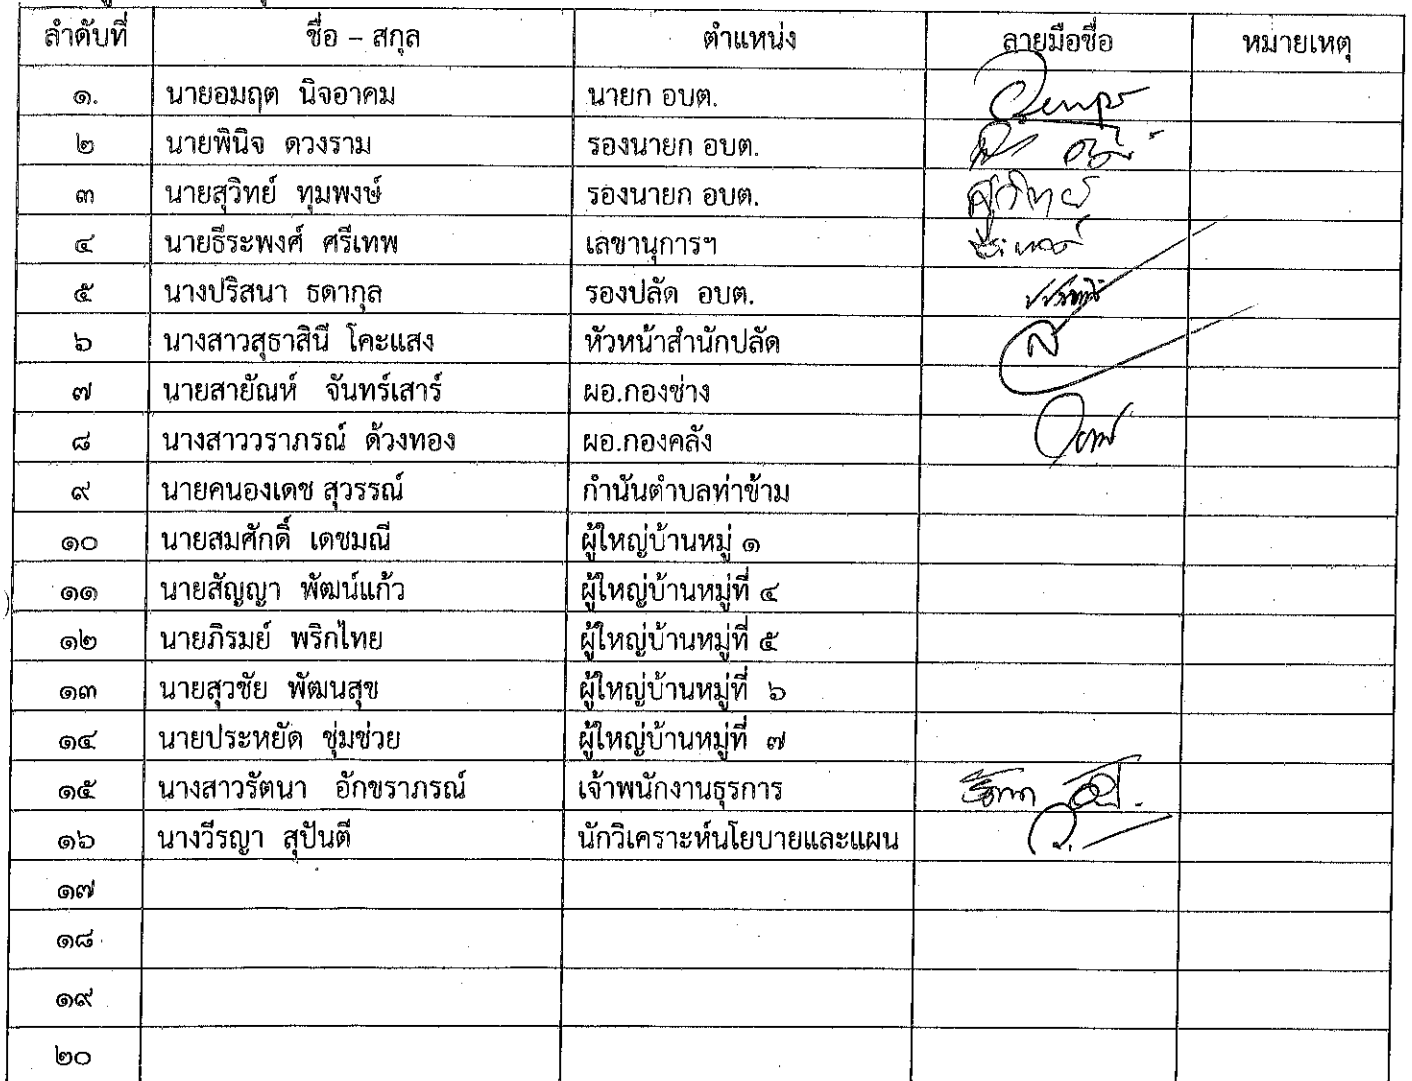 ลำดับที่ ชื่อ – สกุล ตำแหน่ง ลายมือชื่อ หมายเหตุ
๑. นายอมฤต นิจอาคม นายก อบต.
๒ นายพินิจ ดวงราม รองนายก อบต.
๓ นายสุวิทย์ ทุมพงษ์ รองนายก อบต. สุวิทย์
๔ นายธีระพงศ์ ศรีเทพ เลขานุการฯ
๕ นางปริสนา ธดากุล รองปลัด อบต.
๖ นางสาวสุธาสินี โคะแสง หัวหน้าสำนักปลัด
๗ นายสายัณห์ จันทร์เสาร์ ผอ.กองช่าง
๘ นางสาววราภรณ์ ด้วงทอง ผอ.กองคลัง
๙ นายคนองเดช สุวรรณ์ กำนันตำบลท่าข้าม
๑๐ นายสมศักดิ์ เดชมณี ผู้ใหญ่บ้านหมู่ ๑
๑๑ นายสัญญา พัฒน์แก้ว ผู้ใหญ่บ้านหมู่ที่ ๔
๑๒ นายภิรมย์ พริกไทย ผู้ใหญ่บ้านหมู่ที่ ๕
๑๓ นายสุวชัย พัฒนสุข ผู้ใหญ่บ้านหมู่ที่ ๖
๑๔ นายประหยัด ชุ่มช่วย ผู้ใหญ่บ้านหมู่ที่ ๗
๑๕ นางสาวรัตนา อักขราภรณ์ เจ้าพนักงานธุรการ
๑๖ นางวีรญา สุปันตี นักวิเคราะห์นโยบายและแผน
๑๗
๑๘
๑๙
๒๐